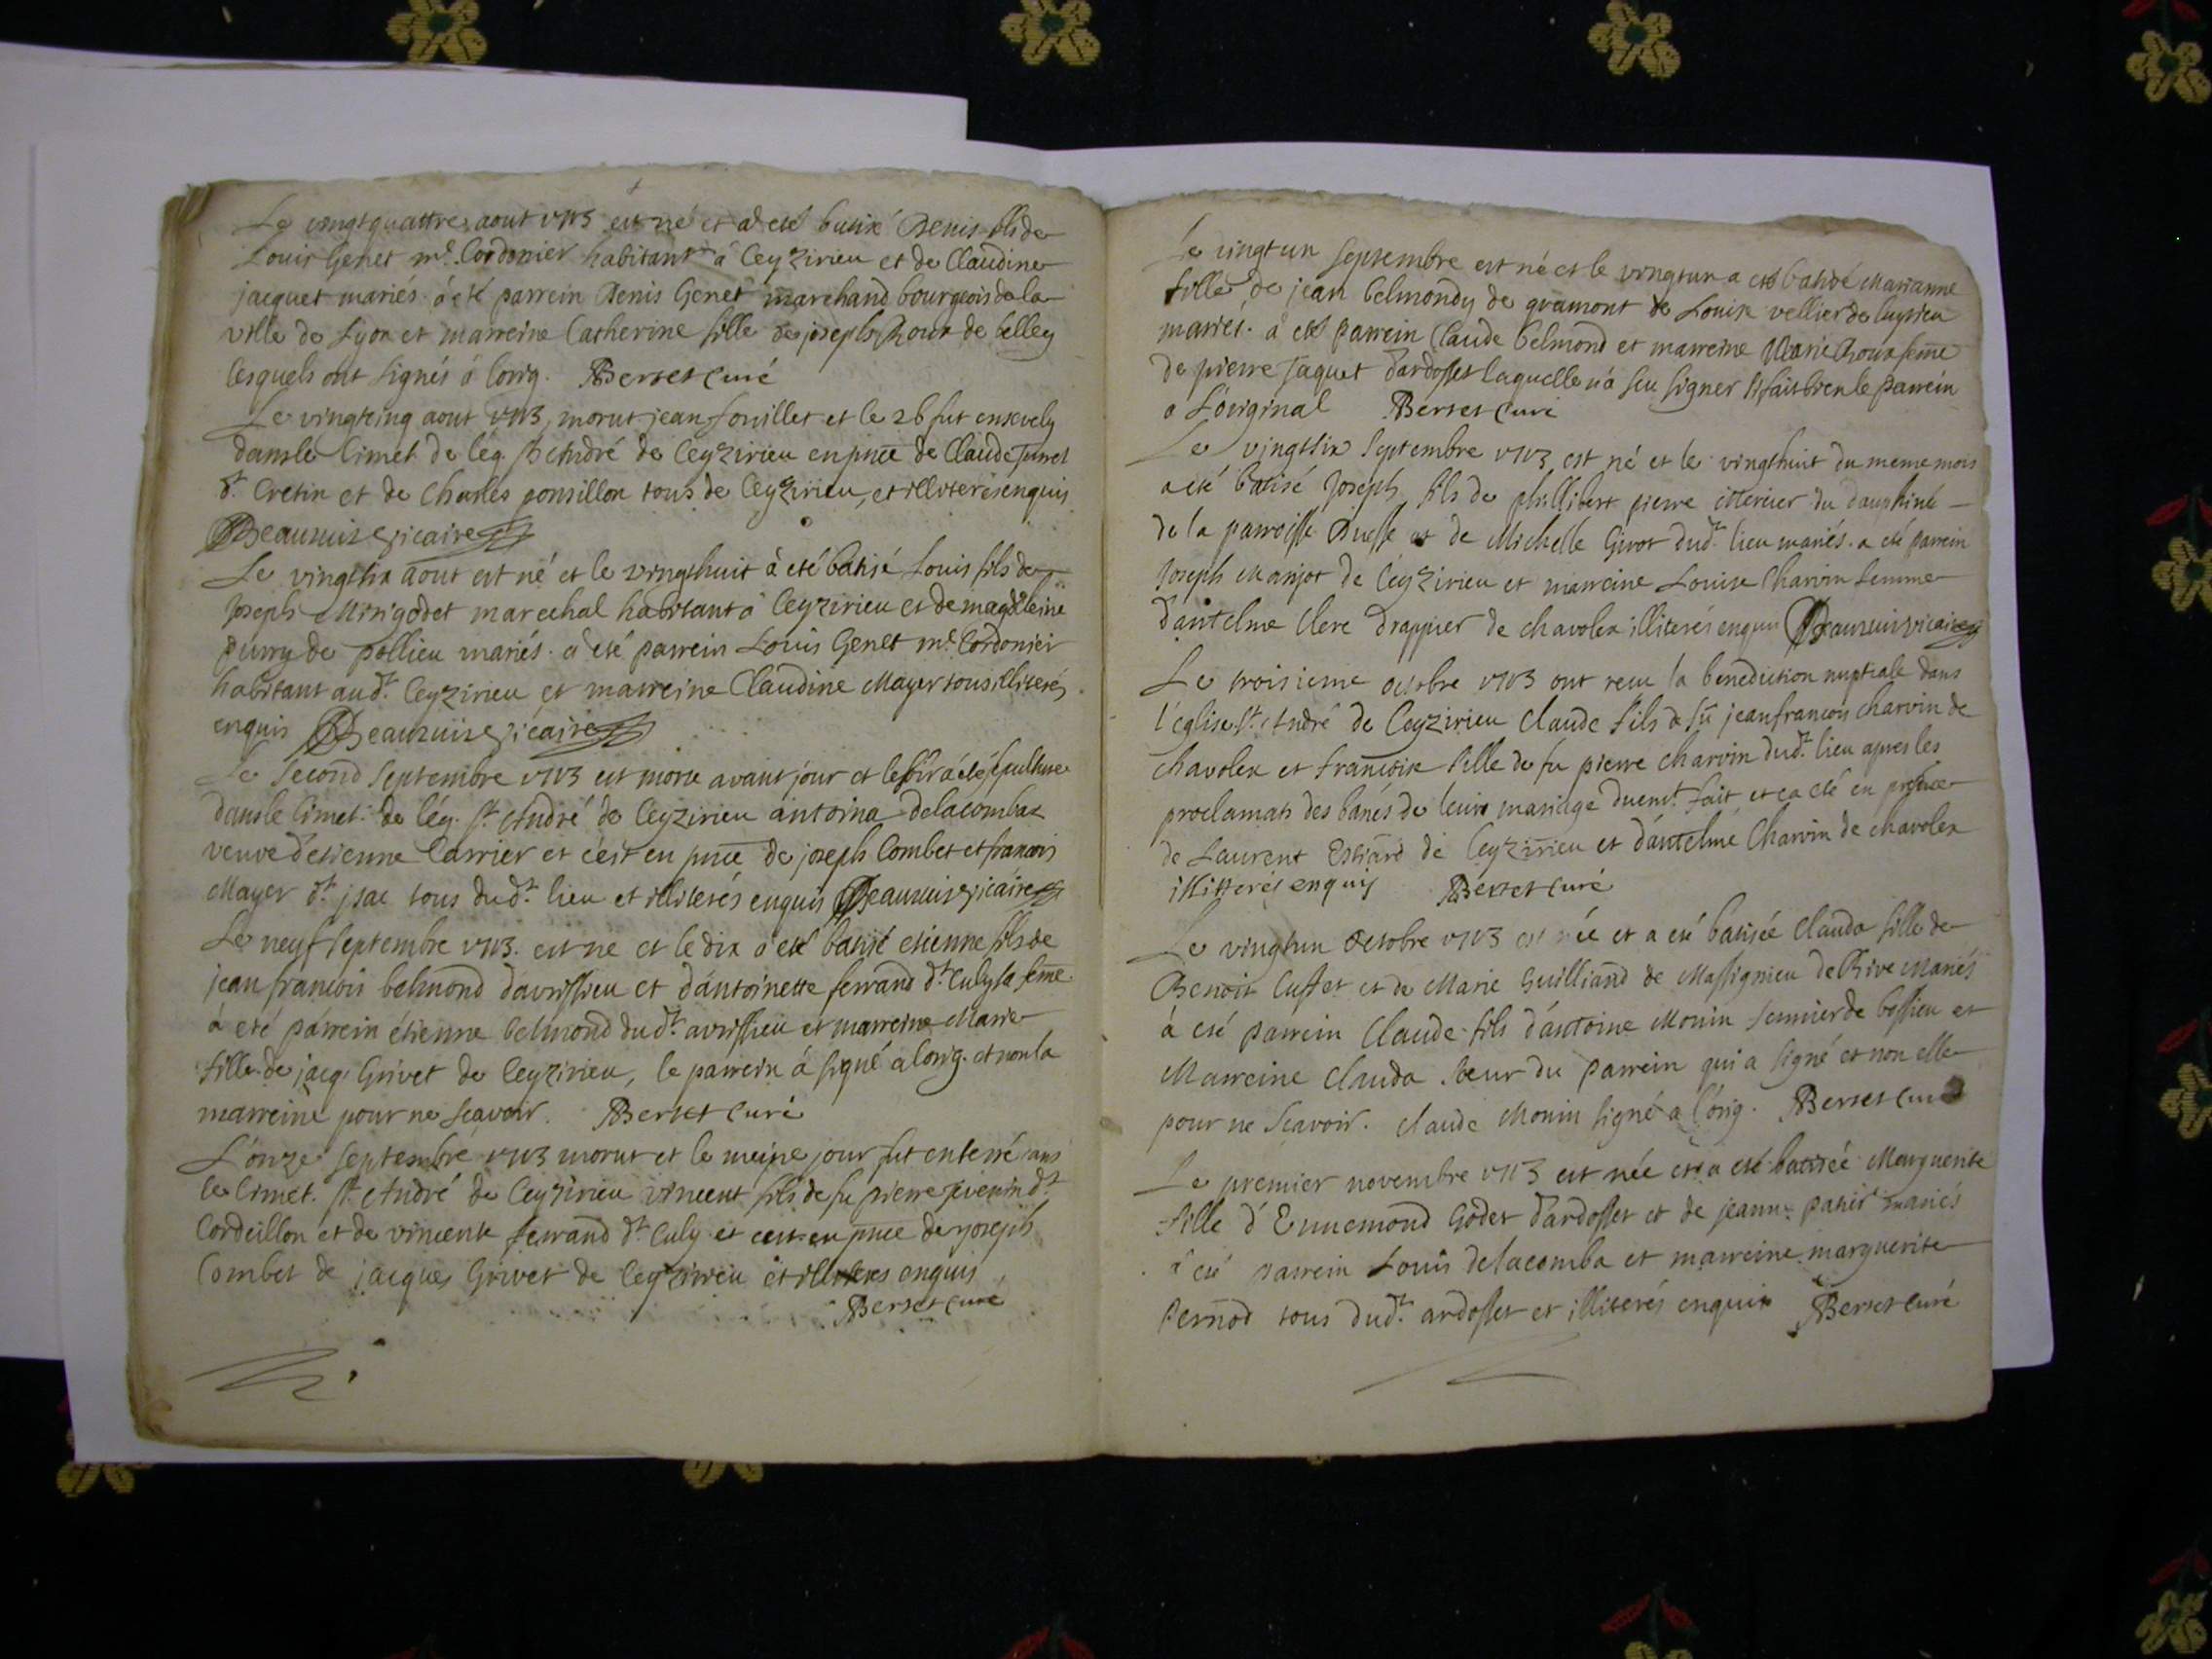 Le vingtquattre aout 1713 est né et a eté batisé Denis fils de
Louis Genet me. Cordonier habitant à Ceyzirieu et de Claudine
jacquet mariés. a eté parrein Denis Genet marchand bourgeois de la
ville de Lyon et marreine Catherine fille de joseph Roux de belley
lesquels ont signés a lorig. Berset Curé
Le vingtcinq aout 1713, morut jean fouillet et le 26 fut ensevely
dans le Cimet de lég. st André de Ceyzirieu en pnce de Claude
dt. Cretin et de Charles ponsillon tous de Ceyzirieu, et illiterés enquis
Beaunuis vicaire
Le vingtsix aout est né et le vingthuit à eté batisé Louis fils de
Joseph Mingodet marechal habitant à Ceyzirieu et de magdeleine
de pollieu mariés. a eté parrein Louis Genet me. Cordonier
habitant audt. Ceyzirieu et marreine Claudine Mayer tous illiterés
enquis Beaunuis vicaire
Le second septembre 1713 est morte avant jour et le soir a été sepulturé
dans le Cimet: de lég. st. André de Ceyzirieu antoina delacombaz
veuve d'etienne Carrier et c'est en pnce de joseph Combet et francois
Mayer dt. jsac tous dudt. lieu et illiterés enquis Beaunuis vicaire
Le neuf septembre 1713. est né et le dix a eté batisé etienne fils de
jean francois belmond d'avrissieu et d'antoinette ferrand dt. Culy sa feme
à eté parrein étienne belmond dudt. avrissieu et marreine Marie
fille de jacq. Grivet de Ceyzirieu, le parrein à signé a lorig. et non la
marreine pour ne scavoir. Berset Curé
L'onze septembre 1713 morut et le meme jour fut enterré dans
le Cimet. st. André de Ceyzirieu vincent fils de fu pierre jevenin dt.
Cordeillon et de vincente ferrand dt. Culy et cest en pnce de joseph
Combet de jacques Grivet de Ceyzirieu et illiterés enquis
Berset Curé
Le vingtun septembre est né et le vingtun a eté batisé Marianne
fille de jean belmondy de gramont de Louise vellier de luyrieu
mariés. a eté parrein Claude belmond et marreine Marie Roux feme
de pierre Jaquet d'ardosset laquelle n'a seu signer si fait bien le parrein
a l'original Berset Curé
Le vingtsix septembre 1713 est né et le vingthuit du meme mois
a eté batisé Joseph fils de phillibert pierre du dauphiné
de la parroisse et de Michelle Girot dudt. lieu mariés. a eté parrein
Joseph Marjot de Ceyzirieu et marreine Louise Charvin femme
d'antelme Clere drappier de chavolex illiterés enquis Beaunuis vicaire
Le troisieme octobre 1713 ont receu la benediction nuptiale dans
l'église st. André de Ceyzirieu Claude fils de fu jeanfrancois charvin de
chavolex et francoise fille de fu pierre charvin dudt. lieu apres les
proclamats des banes de leur mariage duemt. fait et ca eté en presence
de Laurent Estiard de Ceyzirieu et d'antelme Charvin de chavolex
illitterés enquis Berset Curé
Le vingtun Octobre 1713 est née et a eté batisée Clauda fille de
Benoit Custet et de Marie Guilliand de Massignieu de Rive Mariés
à eté parrein Claude fils d'antoine Monin fermier de bossieu et
Marreine Clauda soeur du parrein qui a signé et non elle
pour ne scavoir. Claude Monin signé a l'orig. Berset Curé
Le premier novembre 1713 est née et a eté batisée Marguerite
fille d'Ennemond Godet d'ardosset et de jeanne mariés
a eté parrein Louis delacomba et marreine marguerite
Pernod tous dudt. ardosset et illiterés enquis Berset Curé